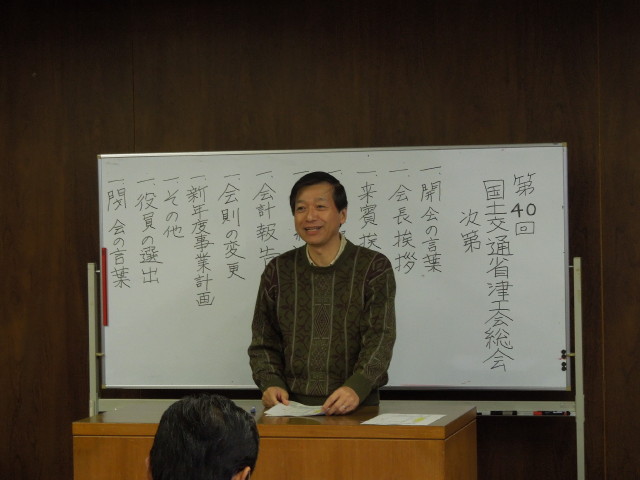 第40回
国土交通省津工会総会
次第
一、開会の言葉
一、会長挨拶
一、来賓挨
一、
一、
一、会計報告
一、会則の変更
一、新年度事業計画
一、その他
一、役員の選出
一、閉会の言葉